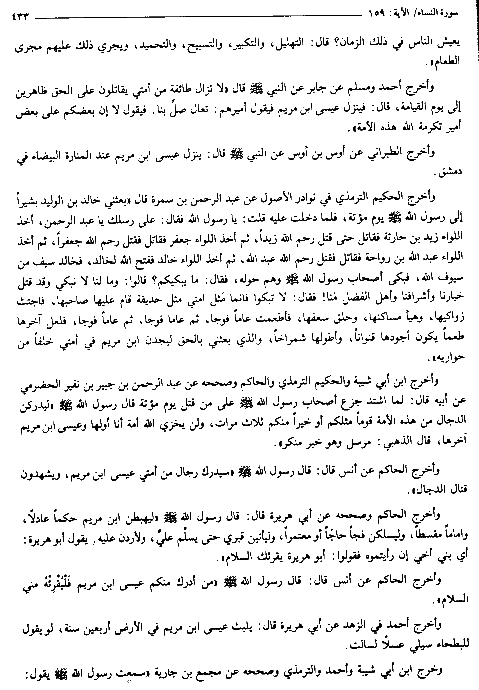 سورة النساء/ الآية: ١٥٩
٤٣٣
يعيش الناس في ذلك الزمان؟ قال: التهليل، والتكبير، والتسبيح، والتحميد، ويجري ذلك عليهم مجرى
الطعام».
وأخرج أحمد ومسلم عن جابر عن النبي ﷺ قال «لا تزال طائفة من أمتي يقاتلون على الحق ظاهرين
إلى يوم القيامة، قال: فينزل عيسى ابن مريم فيقول أميرهم: تعال صلِّ بنا. فيقول لا إن بعضكم على بعض
أمير تكرمة الله هذه الأمة».
وأخرج الطبراني عن أوس بن أوس عن النبي ﷺ قال: ينزل عيسى ابن مريم عند المنارة البيضاء في
دمشق.
وأخرج الحكيم الترمذي في نوادر الأصول عن عبد الرحمن بن سمرة قال «بعثني خالد بن الوليد بشيراً
إلى رسول الله ﷺ يوم مؤتة، فلما دخلت عليه قلت: يا رسول الله فقال: على رسلك يا عبد الرحمن، أخذ
اللواء زيد بن حارثة فقاتل حتى قتل رحم الله زيداً، ثم أخذ اللواء جعفر فقاتل فقتل رحم الله جعفراً، ثم أخذ
اللواء عبد الله بن رواحة فقاتل فقتل رحم الله عبد الله، ثم أخذ اللواء خالد ففتح الله لخالد، فخالد سيف من
سيوف الله، فبكى أصحاب رسول الله ﷺ وهم حوله، فقال: ما يبكيكم؟ قالوا: وما لنا لا نبكي وقد قتل
خيارنا وأشرافنا وأهل الفضل منا! فقال: لا تبكوا فانما مثل امتي مثل حديقة قام عليها صاحبها، فاجتث
زواكيها، وهيأ مساكنها، وحلق سعفها، فأطعمت عاماً فوجا، ثم عاماً فوجا، ثم عاماً فوجا، فلعل آخرها
طعماً يكون أجودها قنواناً، وأطولها شمراخاً، والذي بعثني بالحق ليجدن ابن مريم في أمتي خلفاً من
حواريه».
وأخرج ابن أبي شيبة والحكيم الترمذي والحاكم وصححه عن عبد الرحمن بن جبير بن نفير الحضرمي
عن أبيه قال: لما اشتد جزع أصحاب رسول الله ﷺ على من قتل يوم مؤتة قال رسول الله ﷺ «ليدركن
الدجال من هذه الأمة قوماً مثلكم أو خيراً منكم ثلاث مرات، ولن يخزي الله أمة أنا أولها وعيسى ابن مريم
آخرها، قال الذهبي: مرسل وهو خبر منكر».
وأخرج الحاكم عن أنس قال: قال رسول الله ﷺ «سيدرك رجال من أمتي عيسى ابن مريم، ويشهدون
قتال الدجال».
وأخرج الحاكم وصححه عن أبي هريرة قال: قال رسول الله ﷺ «ليهبطن ابن مريم حكماً عادلاً،
واماماً مقسطاً، وليسلكن فجاً حاجّاً أو معتمراً، وليأتين قبري حتى يسلّم عليّ، ولأردن عليه. يقول أبو هريرة:
أي بني أخي إن رأيتموه فقولوا: أبو هريرة يقرئك السلام».
وأخرج الحاكم عن أنس قال: قال رسول الله ﷺ «من أدرك منكم عيسى ابن مريم فَلْيُقْرِئْهُ مني
السلام».
وأخرج أحمد في الزهد عن أبي هريرة قال: يلبث عيسى ابن مريم في الأرض أربعين سنة، لو يقول
للبطحاء سيلي عسلاً لسالت.
وخرج ابن أبي شيبة وأحمد والترمذي وصححه عن مجمع بن جارية «سمعت رسول الله ﷺ يقول: